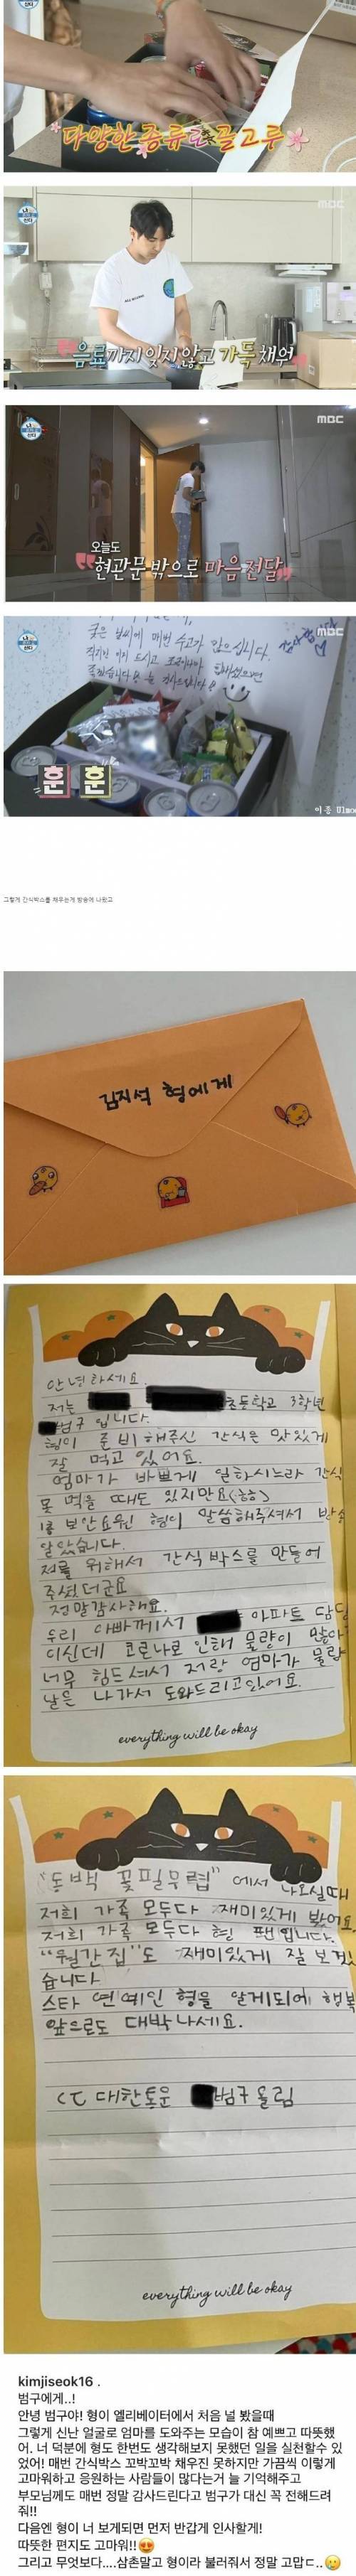 다양한 종류로 골고루
MBC
음료까지 잊지 않고 가득 채워
MBC
오늘도
현관문 밖으로 마음 전달
MBC
궂은 날씨에 매번 수고가 많으십니다.
훈훈
그렇게 간식박스를 채우는게 방송에 나왔고
김지석 형에게
안녕하세요.
저는 초등학교 3학년
범구 입니다.
형이 준비해주신 간식은 맛있게
잘 먹고 있어요.
엄마가 바쁘게 일하시느라 간식
못 먹을 때도 있지만요
보안요원 형이 말씀해주셔서
알았습니다.
저를 위해서 간식 박스를 만들어
주셨더군요
정말감사해요.
우리 아빠께서 아파트 담당
이신데 코로나로 인해 물량이 많아
너무 힘드셔서 저랑 엄마가
나가서 도와드리고있어요.
everything will be okay
"동백 꽃필무렵" 에서 나오실때
저희 가족 모두다 재미있게 봤어요
저희 가족 모두다 형 팬입니다.
"월간 집"도 재미있게 잘 보겠
습니다
스타 연예인 형을 알게되어 행복
앞으로도 대박 나세요.
대한통운 범구 올림
everything will be okay
kimjiseok16 .
범구에게..!
안녕 범구야! 형이 엘리베이터에서 처음 널 봤을때
그렇게 신난 얼굴로 엄마를 도와주는 모습이 참 예쁘고 따뜻했
어. 너 덕분에 형도 한번도 생각해보지 못했던 일을 실천할수 있
었어! 매번 간식박스 꼬박꼬박 채우진 못하지만 가끔씩 이렇게
고마워하고 응원하는 사람들이 많다는거 늘 기억해주고
부모님께도 매번 정말 감사드린다고 범구가 대신 꼭 전해드려
줘!!
다음엔 형이 너 보게되면 먼저 반갑게 인사할게!
따뜻한 편지도 고마워!!😍
그리고 무엇보다....삼촌말고 형이라 불러줘서 정말 고맙ㄷ..🥲